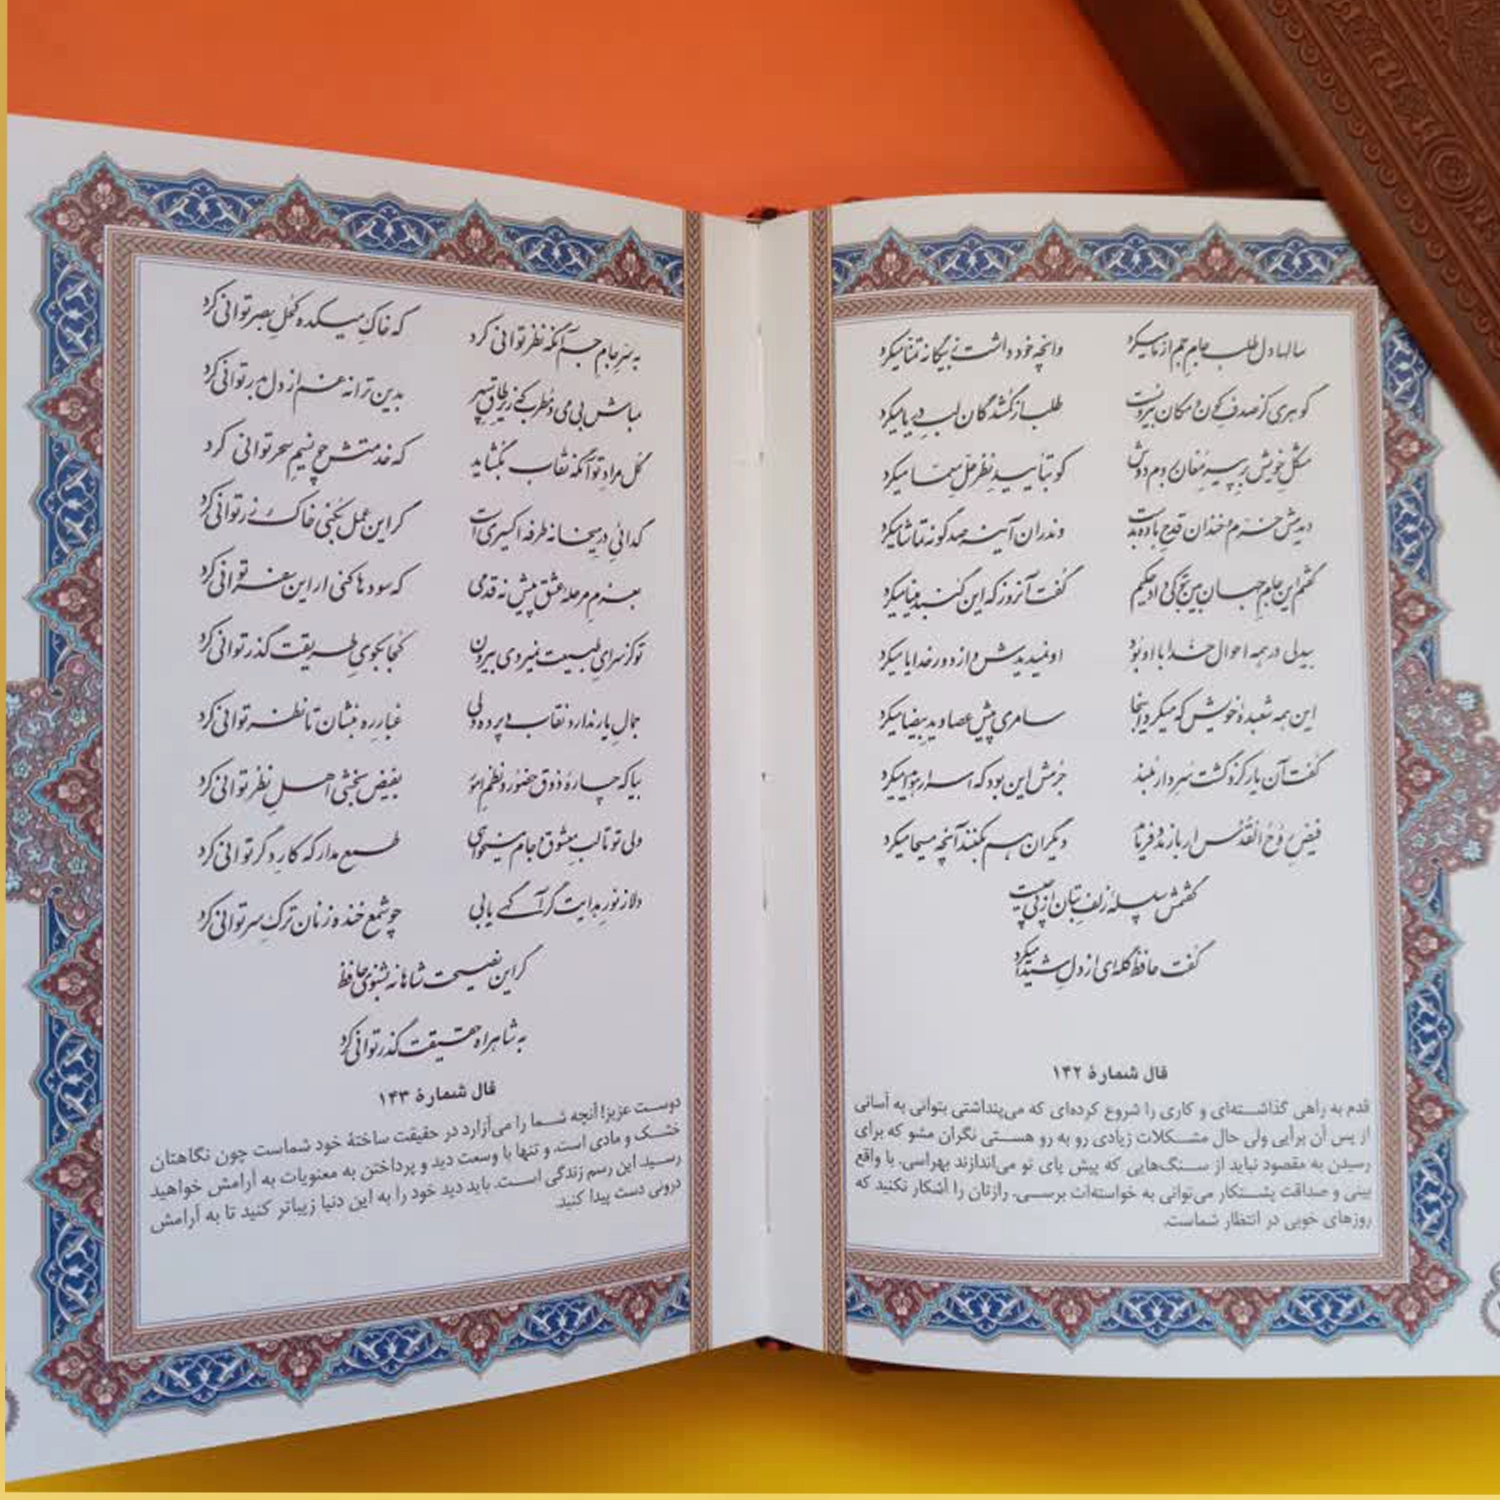 سالها دل طلب جام جم از ما میکرد
وانچه خود داشت ز بیگانه تمنا میکرد
گوهری کز صدف کون و مکان بیرونست
طلب از گمشدگان لب دریا میکرد
مشکل خویش بر پیر مغان بردم دوش
کو بتأیید نظر حل معما میکرد
دیدمش خرم و خندان قدح باده بدست
وندران آینه صد گونه تماشا میکرد
گفتم این جام جهان بین بتو کی داد حکیم
گفت آنروز که این گنبد مینا میکرد
بیدلی در همه احوال خدا با او بود
او نمیدیدش و از دور خدایا میکرد
این همه شعبدهٔ خویش که میکرد اینجا
سامری پیش عصا و ید بیضا میکرد
گفت آن یار کزو گشت سر دار بلند
جرمش این بود که اسرار هویدا میکرد
فیض روح القدس ار باز مدد فرماید
دیگران هم بکنند آنچه مسیحا میکرد
گفتمش سلسلهٔ زلف بتان از پی چیست
گفت حافظ گله‌ای از دل شیدا میکرد
فال شمارهٔ ۱۴۲
قدم به راهی گذاشته‌ای و کاری را شروع کرده‌ای که می‌پنداشتی بتوانی به آسانی
از پس آن برآیی ولی حال مشکلات زیادی رو به رو هستی نگران مشو که برای
رسیدن به مقصود نباید از سنگ‌هایی که پیش پای تو می‌اندازند بهراسی. با واقع
بینی و صداقت پشتکار می‌توانی به خواسته‌ات برسی. رازتان را آشکار نکنید که
روزهای خوبی در انتظار شماست.
به سر جام جم آنگه نظر توانی کرد
که خاک میکده کحل بصر توانی کرد
مباش بی می و مطرب که زیر طاق سپهر
بدین ترانه غم از دل بدر توانی کرد
گل مراد تو آنگه نقاب بگشاید
که خدمتش چو نسیم سحر توانی کرد
گدائی در میخانه طرفه اکسیری است
گر این عمل بکنی خاک زر توانی کرد
بعزم مرحله عشق پیش نه قدمی
که سودها کنی ار این سفر توانی کرد
تو کز سرای طبیعت نمیروی بیرون
کجا بکوی طریقت گذر توانی کرد
جمال یار ندارد نقاب و پرده ولی
غبار ره بنشان تا نظر توانی کرد
بیا که چارهٔ ذوق حضور و نظم امور
بفیض بخشی اهل نظر توانی کرد
ولی تو تا لب معشوق و جام میخواهی
طمع مدار که کار دگر توانی کرد
دلا ز نور هدایت گر آگهی یابی
چو شمع خنده زنان ترک سر توانی کرد
گر این نصیحت شاهانه بشنوی حافظ
به شاهراه حقیقت گذر توانی کرد
فال شمارهٔ ۱۴۳
دوست عزیز! آنچه شما را می‌آزارد در حقیقت ساختهٔ خود شماست چون نگاهتان
خشک و مادی است. و تنها با وسعت دید و پرداختن به معنویات به آرامش خواهید
رسید این رسم زندگی است. باید دید خود را به این دنیا زیباتر کنید تا به آرامش
درونی دست پیدا کنید.